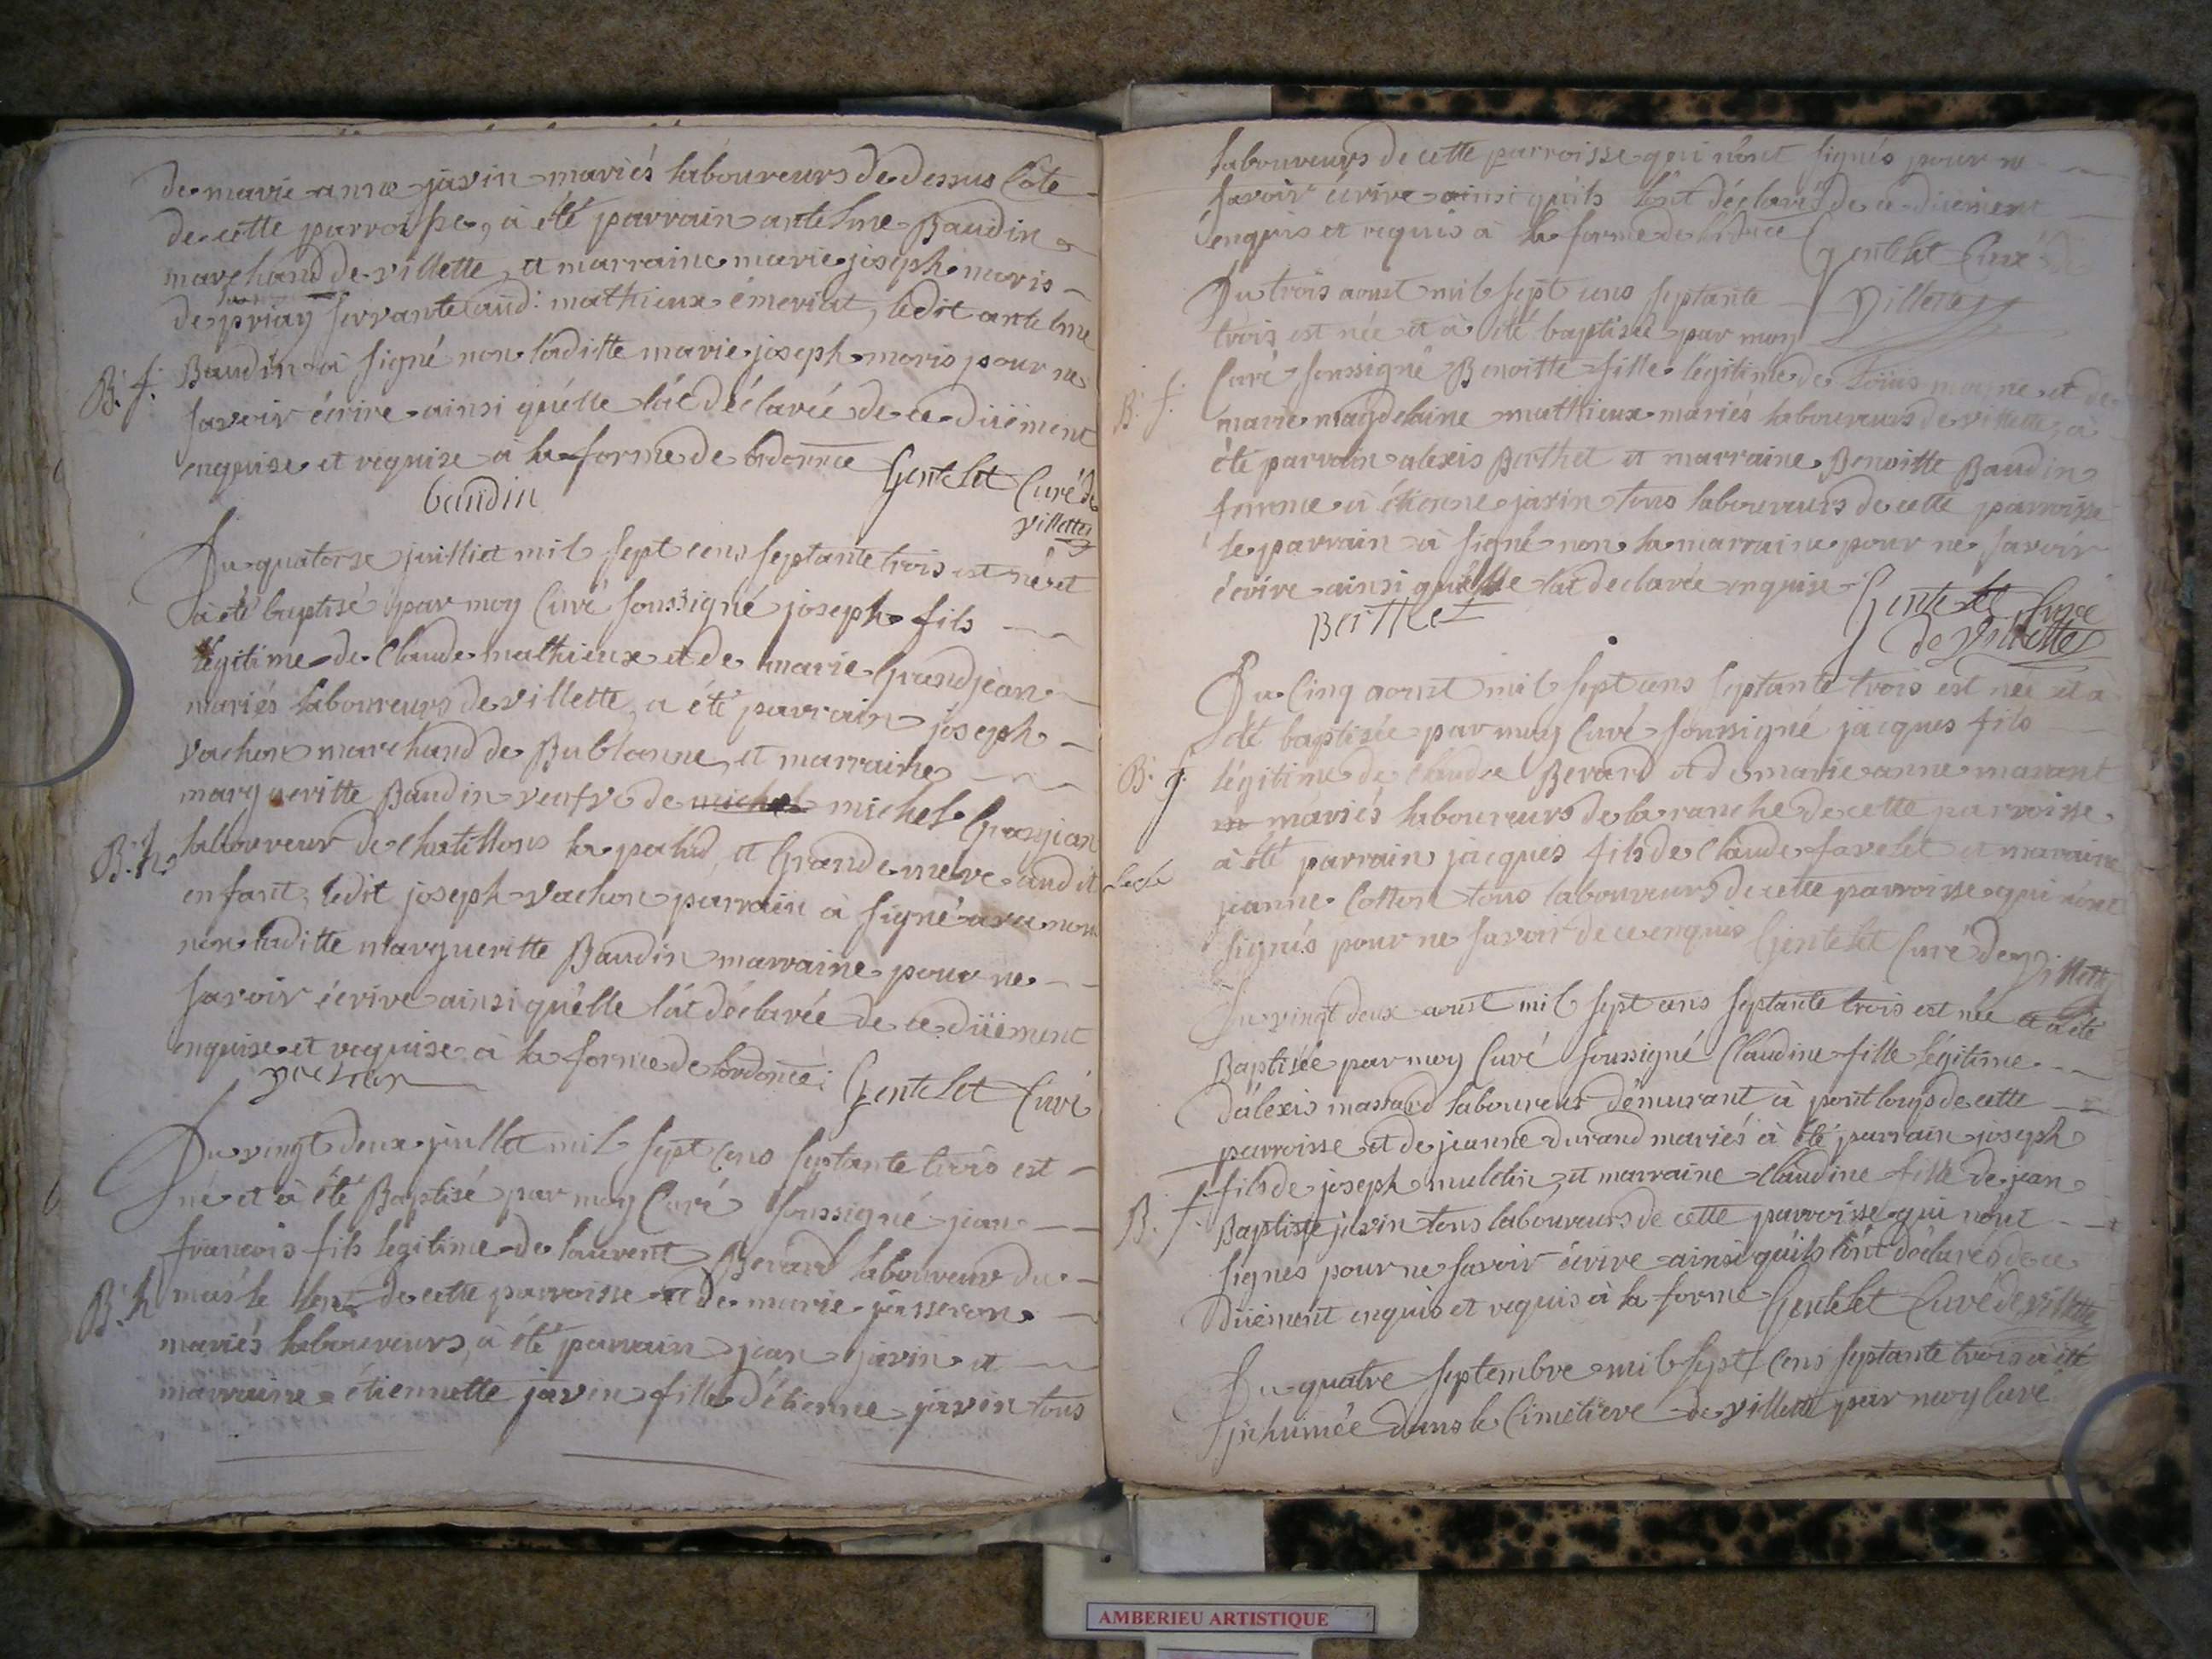 de marie anne javin mariés laboureurs de dessus Côte
de cette parroisse, à été parrain antelme Baudin
marchand de villette, et marraine marie joseph moris
de priay servante aud: mathieux émeriat, ledit antelme
B: f: Baudin à signé non laditte marie joseph moris pour ne
savoir écrire ainsi qu'élle l'at déclarée de ce düëment
enquise et requise à la forme de l'ordonnce Gentelet Curé de
baudin villette
Du quatorse juilliet mil sept cens septante trois est né et
à été baptisé par moy Curé soussigné joseph fils
légitime de Claude mathieux et de marie Grandjean
mariés laboureurs de villette, a été parrain joseph
vachon marchand de Bublanne, et marraine
margueritte Baudin veufve de michel michel Granjean
B: h. laboureur de chatillon la palud, et Grande mere audit
enfant, ledit joseph vachon parrain à signé avec nous
non laditte margueritte Baudin marraine pour ne
savoir écrire ainsi qu'élle l'at déclarée de ce düëment
enquise et requise à la forme de l'ordonce: Gentelet Curé
vachon
Du vingt deux juillet mil sept cens septante trois est
né et à été Baptisé par moy Curé soussigné jean
francois fils legitime de laurent Berard laboureur du
B: h mas le de cette parroisse et de marie josseron
mariés laboureurs, à été parrain jean javin et
marraine étiennette javin fille d'étienne javin tous
laboureurs de cette parroisse qui n'ont signés pour ne
savoir écrire ainsi qu'ils l'ont déclarés de ce düement
enquis et requis à la forme de l'ordce Gentelet Curé de
Du trois aoust mil sept cens septante Villette
trois est née et à été baptisée par moy
Curé soussigné Benoitte fille légitime de Loüis moyne et de
B: f: marie magdelaine mathieux mariés laboureurs de villette, à
été parrain alexis Berthet et marraine Benoitte Baudin
femme à étienne javin tous laboureurs de cette parroisse
le parrain à signé non la marraine pour ne savoir
écrire ainsi qu'élle l'at declarée enquise Gentelet Curé
Berthet de Villette
Du Cinq aoust mil sept cens septante trois est née et à
été baptisée par moy Curé soussigné jacques fils
B: g: légitime de Claude Berard et de marie anne marant
m mariés laboureurs de la ranche de cette parroisse
à été parrain jacques fils de Claude favelet et maraine
jeanne Cotton tous laboureurs de cette parroisse qui n'ont
signés pour ne savoir de ce enquis Gentelet Curé de Villette
Du vingt deux aoust mil sept cens septante trois est née et à été
Baptisée par moy Curé soussigné Claudine fille légitime
d'alexis massard laboureur démurant à pont louys de cette
parroisse et de jeanne durand mariés à été parrain joseph
fils de joseph muletin, et marraine Claudine fille de jean
B. f. Baptiste javin tous laboureurs de cette parroisse qui n'ont
signés pour ne savoir écrire ainsi qu'ils l'ont déclarés de ce
düement enquis et requis à la forme Gentelet Curé de villette
Du quatre septembre mil sept cens septante trois à été
inhumée dans le Cimetiere de villette par moy Curé
AMBERIEU ARTISTIQUE